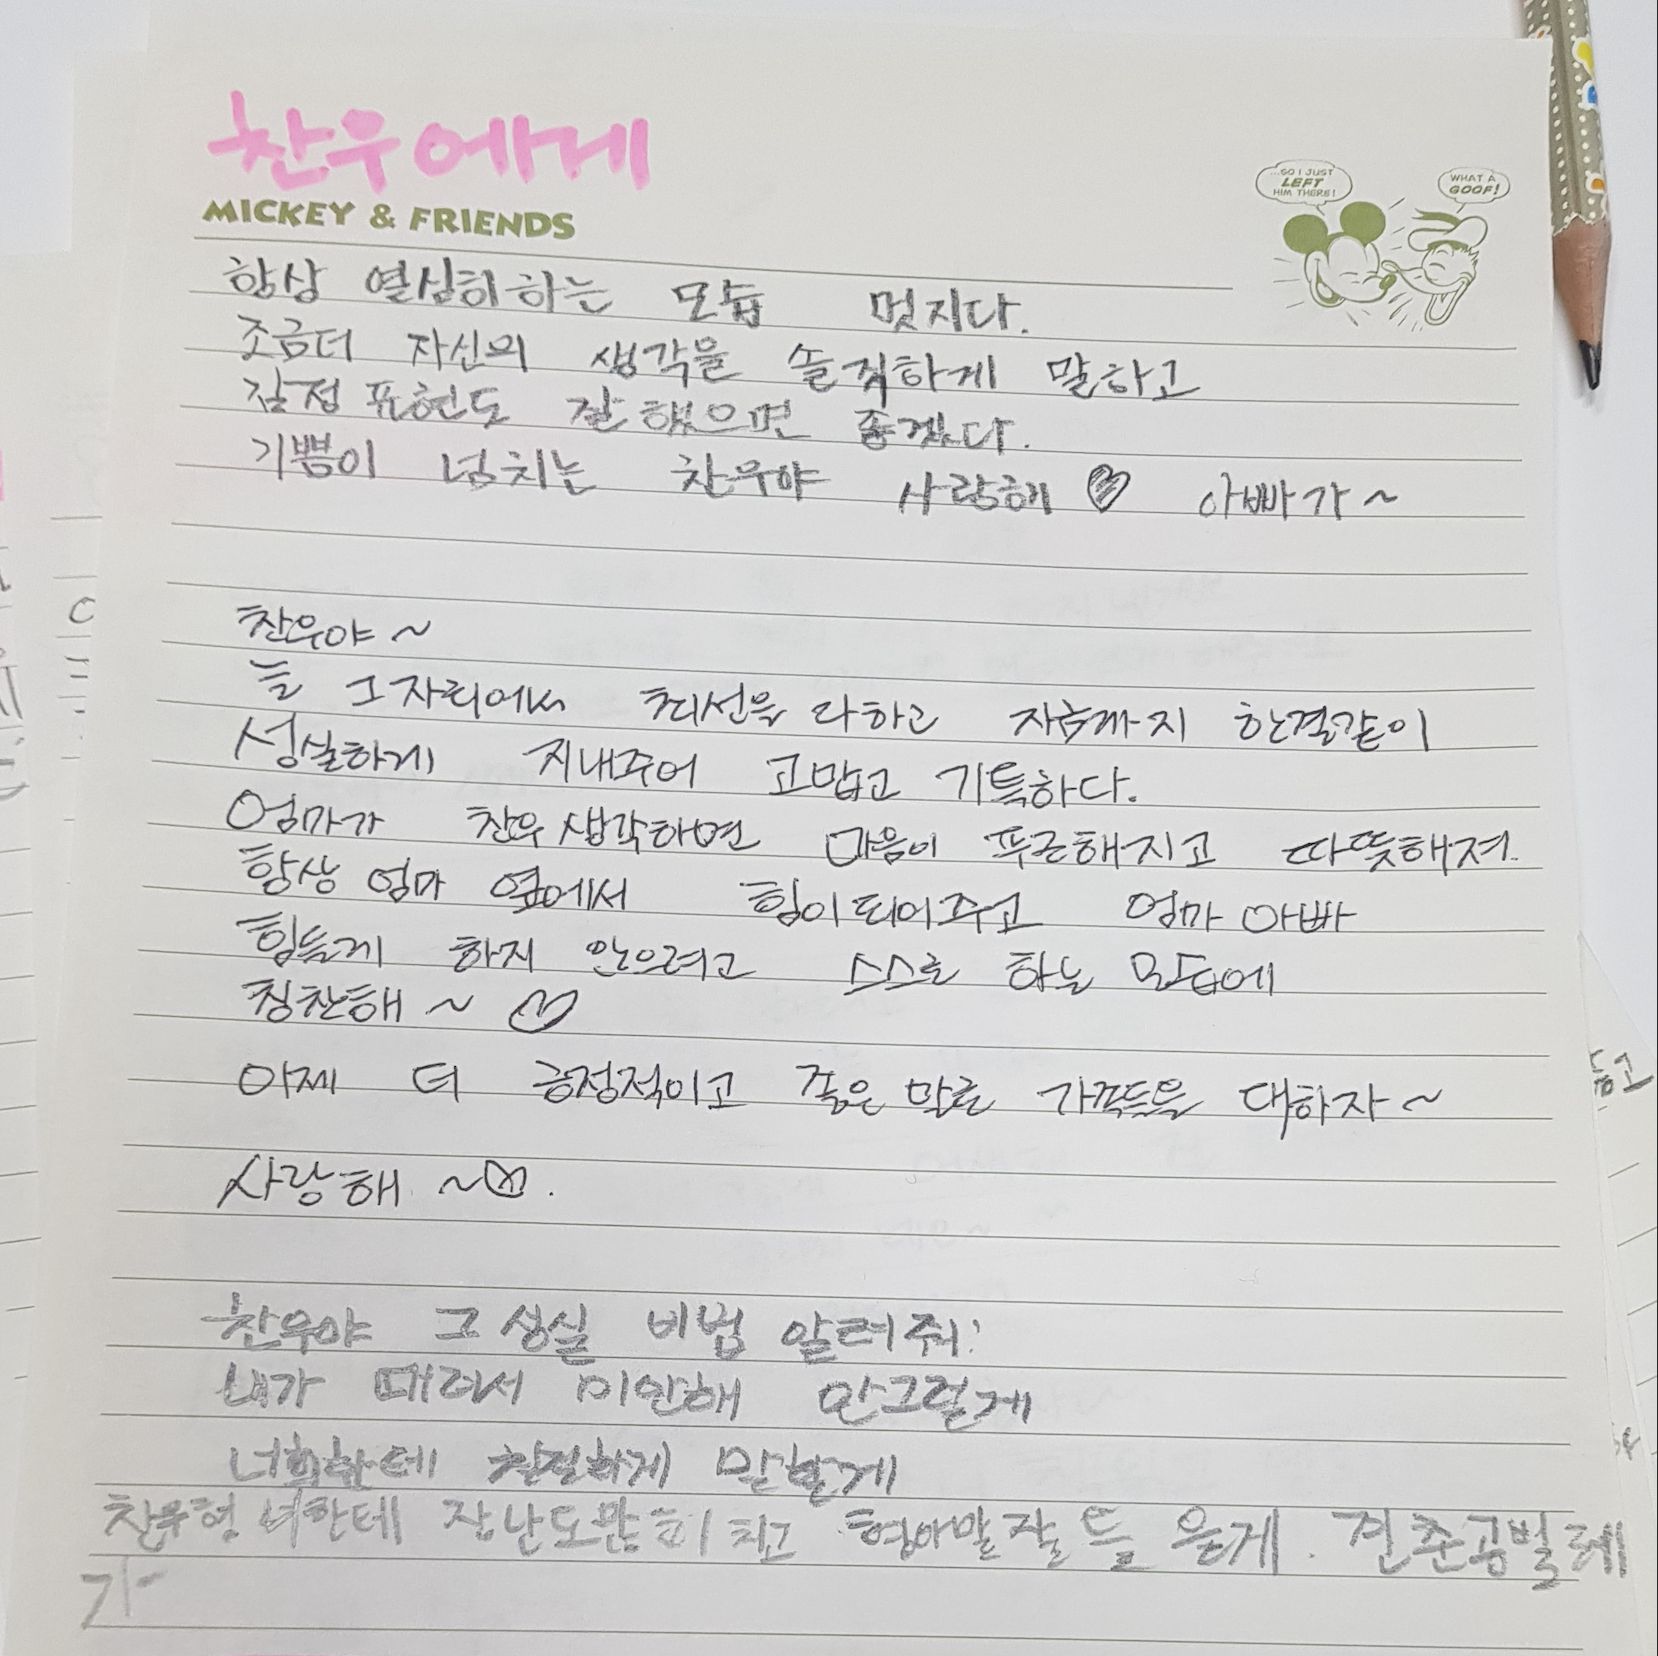 찬우에게
MICKEY & FRIENDS
...SO I JUST LEFT HIM THERE!
WHAT A GOOF!
항상 열심히하는 모습 멋지다.
조금더 자신의 생각을 솔직하게 말하고
감정 표현도 잘 했으면 좋겠다.
기쁨이 넘치는 찬우야 사랑해 ♡ 아빠가~
찬우야~
늘 그자리에서 최선을 다하고 지금까지 한결같이
성실하게 지내주어 고맙고 기특하다.
엄마가 찬우생각하면 마음이 푸근해지고 따뜻해져.
항상 엄마 옆에서 힘이되어주고 엄마 아빠
힘들게 하지 않으려고 스스로 하는 모습에
칭찬해~ ♡
이제 더 긍정적이고 좋은 말로 가족들을 대하자~
사랑해~♡.
찬우야 그 성실 비법 알려줘!
내가 때려서 미안해 안그럴게
너희한테 친절하게 말할게
찬우형 너한테 장난도많히치고 형아말잘 들 을게. 견춘공벌레
가